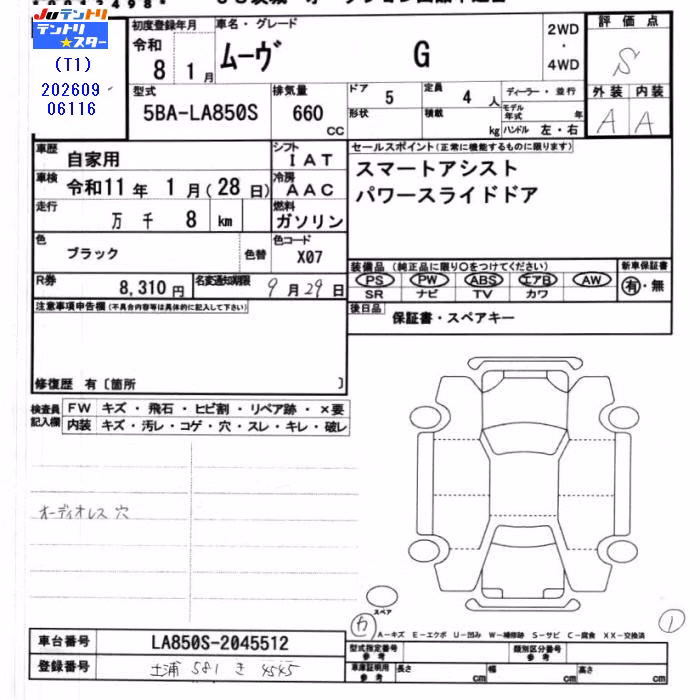 JUテントリ
テントリ★スター
(T1)
202609
06116
初度登録年月
令和
8 1月
車名・グレード
ムーヴ G
2WD
・
4WD
評価点
S
外装 内装
A A
型式
5BA-LA850S
排気量
660
CC
ドア
5
定員
4 人
形状
積載
kg
ディーラー・並行
モデル年式 年
ハンドル 左・右
車歴
自家用
シフト
IAT
車検
令和11年 1月(28日)
冷房
AAC
走行
万 千 8 km
燃料
ガソリン
色
ブラック
色替
色コード
X07
R券
8,310円
名変通知期限
9月29日
セールスポイント(正常に機能するものに限ります)
スマートアシスト
パワースライドドア
装備品 (純正品に限り○をつけてください)
PS PW ABS エアB AW
SR ナビ TV カワ
新車保証書
有・無
後日品
保証書・スペアキー
注意事項申告欄(不具合内容等は具体的に記入して下さい)
修復歴 有〔箇所 〕
検査員
記入欄
FW キズ・飛石・ヒビ割・リペア跡・×要
内装 キズ・汚レ・コゲ・穴・スレ・キレ・破レ
オーディオレス 穴
スペア
カ
A-キズ E-エクボ U-凹み W-補修跡 S-サビ C-腐食 XX-交換済
1
車台番号
LA850S-2045512
登録番号
土浦 581 き 4545
型式指定番号
参考
類別区分番号
参考
車庫証明用
参考
長さ cm
幅 cm
高さ cm